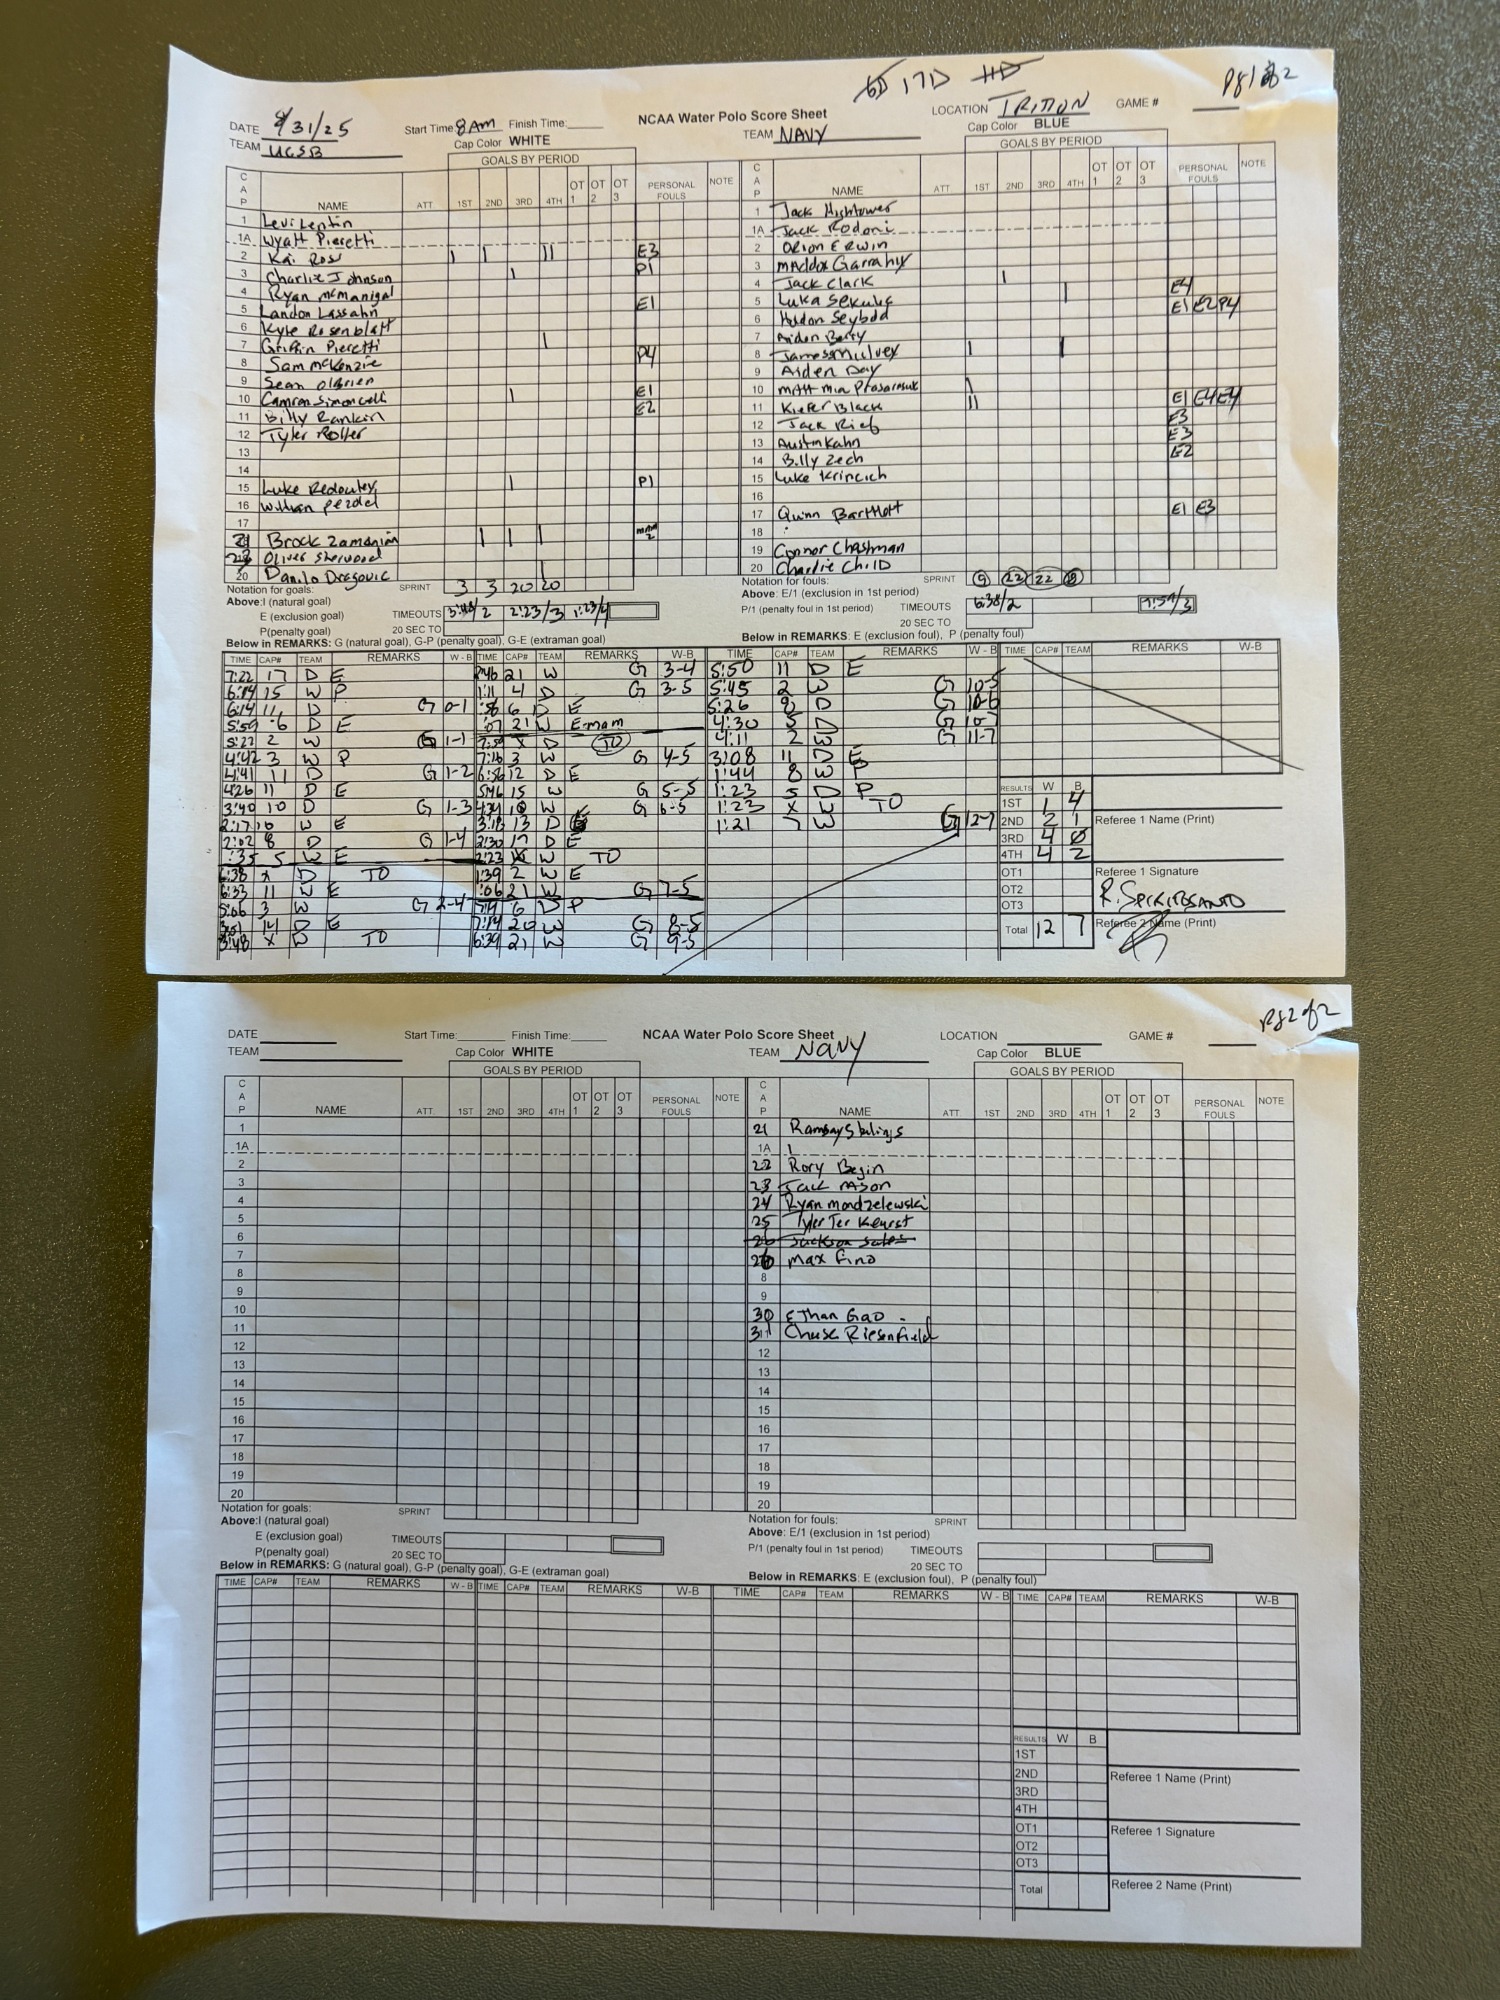 17D
Pg 1 of 2
DATE 8/31/25 Start Time 8 AM Finish Time: NCAA Water Polo Score Sheet LOCATION TRITON GAME #
TEAM UCSB Cap Color WHITE TEAM NAVY Cap Color BLUE
GOALS BY PERIOD GOALS BY PERIOD
CAP NAME ATT. 1ST 2ND 3RD 4TH OT 1 OT 2 OT 3 PERSONAL FOULS NOTE CAP NAME ATT. 1ST 2ND 3RD 4TH OT 1 OT 2 OT 3 PERSONAL FOULS NOTE
1 Levi Lentin 1 Jack Hightower
1A Wyatt Pieretti 1A Jack Rodoni
2 Kai Ross I I II E3 2 Orion Erwin
3 Charlie Johnson I P1 3 Maddox Garrahy
4 Ryan McManigal 4 Jack Clark I E4
5 Landon Lassahn E1 5 Luka Sekulic I E1 E2 P4
6 Kyle Rosenblatt 6 Holdon Seybold
7 Griffin Pieretti I 7 Aiden Berry
8 Sam McKenzie P4 8 James Mulvey I I
9 Sean O'Brien 9 Aiden Day
10 Camron Simoncelli I E1 10 I
11 Billy Rankin E2 11 Kiefer Black II E1 E4 E4
12 Tyler Roller 12 Jack Rieb E3
13 13 Austin Kahn E3
14 14 Billy Zech E2
15 Luke Redoutey I P1 15 Luke Krincich
16 16
17 17 Quinn Bartlett E1 E3
21 Brock Zamanian I I I MAM 2 18
Oliver Sherwood 19 Connor Chastman
20 Danilo Dragovic 20 Charlie Child
Notation for goals: SPRINT 3 3 20 20 Notation for fouls: SPRINT 9 22 22
Above: I (natural goal) Above: E/1 (exclusion in 1st period)
E (exclusion goal) TIMEOUTS 3:48/2 2:23/3 1:23/4 P/1 (penalty foul in 1st period) TIMEOUTS 6:38/2 7:59/3
P(penalty goal) 20 SEC TO 20 SEC TO
Below in REMARKS: G (natural goal), G-P (penalty goal), G-E (extraman goal) Below in REMARKS: E (exclusion foul), P (penalty foul)
TIME CAP# TEAM REMARKS W - B TIME CAP# TEAM REMARKS W-B TIME CAP# TEAM REMARKS W - B TIME CAP# TEAM REMARKS W-B
7:22 17 D E :46 21 W G 3-4 5:50 11 D E
6:14 15 W P 1:11 4 D G 3-5 5:45 2 W G 10-5
6:14 11 D G 0-1 :56 6 D E 5:26 8 D G 10-6
5:59 6 D E :07 21 W E-mam 4:30 5 D G 10-7
5:27 2 W G 1-1 7:59 X D TO 4:11 2 W G 11-7
4:42 3 W P 7:16 3 W G 4-5 3:08 11 D E
4:41 11 D G 1-2 6:56 12 D E 1:44 8 W P
4:26 11 D E 5:46 15 W G 5-5 1:23 5 D P
3:40 10 D G 1-3 4:34 10 W G 6-5 1:23 X W TO
2:17 10 W E 3:18 13 D E 1:21 7 W G 12-7
2:02 8 D G 1-4 2:30 17 D E
:35 5 W E 2:23 X W TO
6:38 X D TO 1:39 2 W E
6:33 11 W E :06 21 W G 7-5
5:06 3 W G 2-4 7:19 6 D P
3:51 14 D E 7:14 20 W G 8-5
3:48 X W TO 6:39 21 W G 9-5
RESULTS W B
1ST 1 4
2ND 2 1 Referee 1 Name (Print)
3RD 4 0
4TH 4 2
OT1 Referee 1 Signature
OT2 R. SPIRITOSANTO
OT3
Total 12 7 Referee 2 Name (Print)
Pg 2 of 2
DATE Start Time: Finish Time: NCAA Water Polo Score Sheet LOCATION GAME #
TEAM Cap Color WHITE TEAM Navy Cap Color BLUE
GOALS BY PERIOD GOALS BY PERIOD
CAP NAME ATT. 1ST 2ND 3RD 4TH OT 1 OT 2 OT 3 PERSONAL FOULS NOTE CAP NAME ATT. 1ST 2ND 3RD 4TH OT 1 OT 2 OT 3 PERSONAL FOULS NOTE
1 21 Ramsay
1A 1A
2 22 Rory Begin
3 23 Jack Mson
4 24 Ryan modzelewski
5 25 Tyler Ter Keurst
6 26
7 26 Max Fino
8 8
9 9
10 30 Ethan Gao
11 31 Chase Riesenfield
12 12
13 13
14 14
15 15
16 16
17 17
18 18
19 19
20 20
Notation for goals: SPRINT Notation for fouls: SPRINT
Above: I (natural goal) Above: E/1 (exclusion in 1st period)
E (exclusion goal) TIMEOUTS P/1 (penalty foul in 1st period) TIMEOUTS
P(penalty goal) 20 SEC TO 20 SEC TO
Below in REMARKS: G (natural goal), G-P (penalty goal), G-E (extraman goal) Below in REMARKS: E (exclusion foul), P (penalty foul)
TIME CAP# TEAM REMARKS W - B TIME CAP# TEAM REMARKS W-B TIME CAP# TEAM REMARKS W - B TIME CAP# TEAM REMARKS W-B
RESULTS W B
1ST
2ND Referee 1 Name (Print)
3RD
4TH
OT1 Referee 1 Signature
OT2
OT3
Total Referee 2 Name (Print)